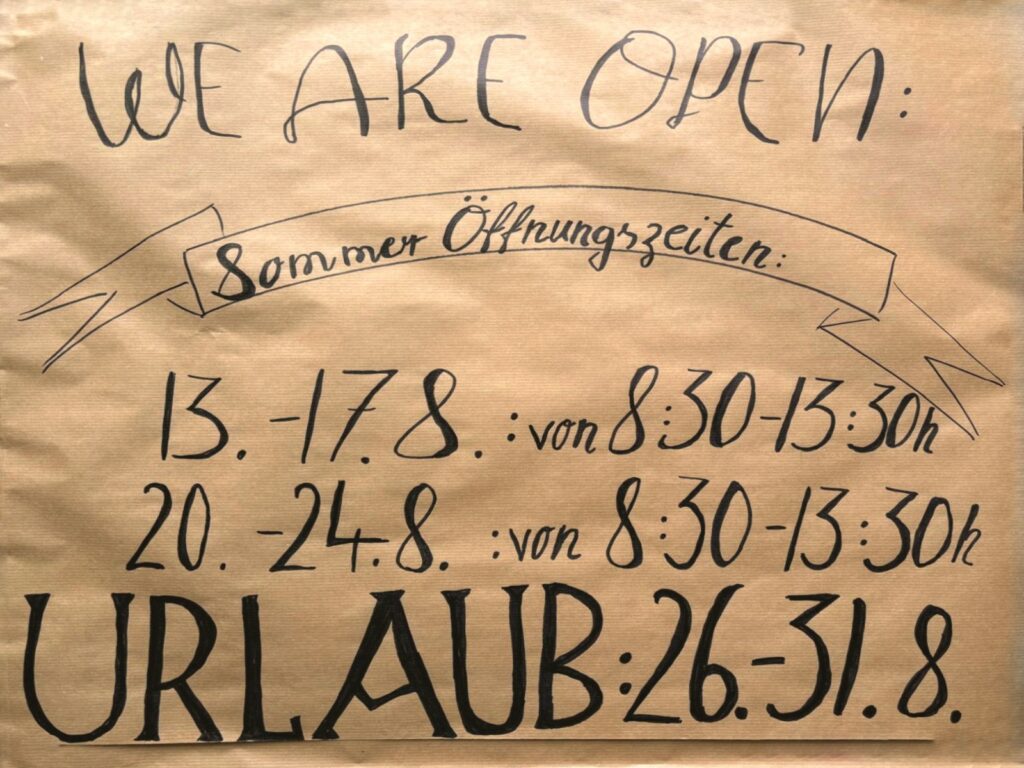 WE ARE OPEN:
Sommer Öffnungszeiten:
13. -17.8. : von 8:30-13:30h
20. -24.8. : von 8:30-13:30h
URLAUB: 26.-31.8.